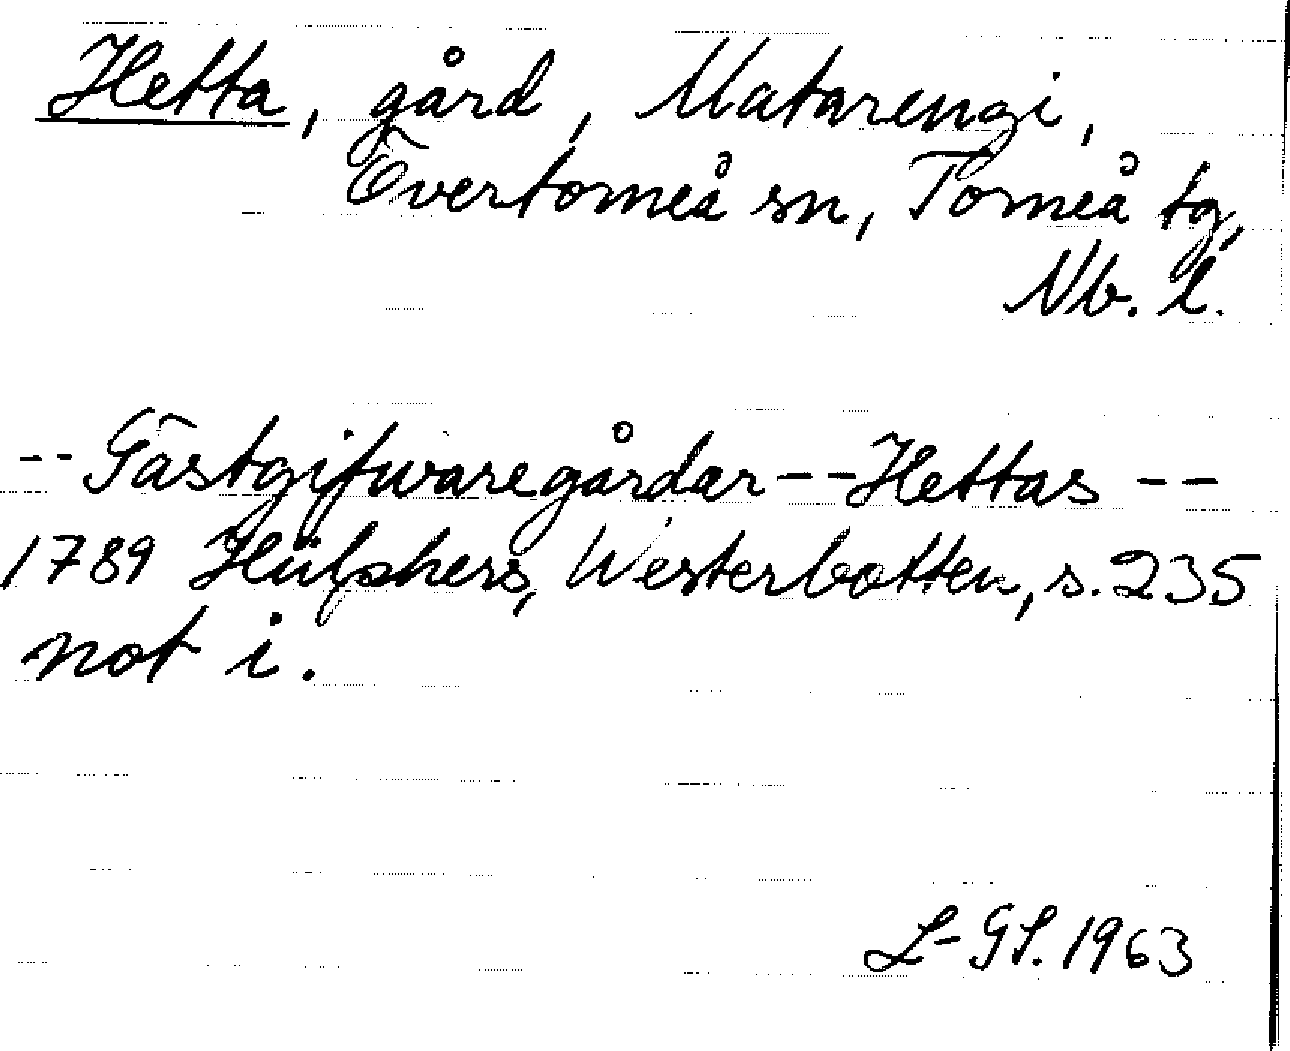 Hetta, gård, Matarengi,
Övertorneå sn, Torneå tg,
Nb. l.
-- Gästgifwaregårdar -- Hettas --
1789 Hülphers, Westerbotten, s. 235
not i.
L-GS. 1963